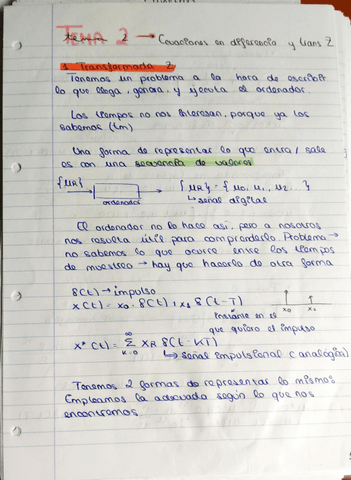 TEMA 2 → Ecuaciones en diferencia y trans Z
1. Transformada Z
Tenemos un problema a la hora de escribir
lo que llega, genera, y ejecuta el ordenador.
Los tiempos no nos interesan, porque ya los
sabemos (tm)
Una forma de representar lo que entra / sale
es con una secuencia de valores
{uk} → ordenador → {uk} = {u0, u1, u2... }
↳ señal digital
El ordenador no lo hace así, pero a nosotros
nos resulta útil para comprenderlo. Problema →
no sabemos lo que ocurre entre los tiempos
de muestreo → hay que hacerlo de otra forma
δ(t) → impulso
x(t) = x0 · δ(t) + x1 δ(t-T)
x0 x1
Instante en el
que quiero el impulso
x*(t) = ∞ Σ k=0 xk δ(t - kT)
↳ señal impulsional (analógica)
Tenemos 2 formas de representar lo mismo.
Empleamos la adecuada según lo que nos
encontremos.